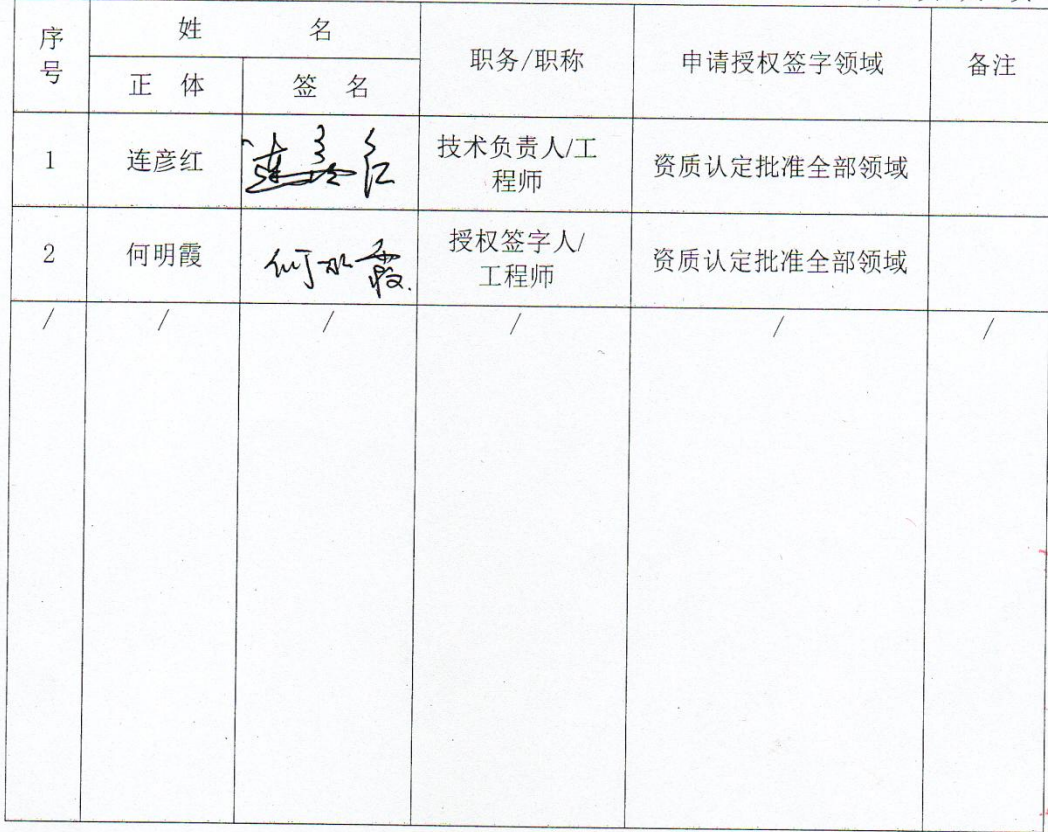 序号 姓 名 职务/职称 申请授权签字领域 备注
正 体 签 名
1 连彦红 连彦红 技术负责人/工
程师 资质认定批准全部领域
2 何明霞 何明霞 授权签字人/
工程师 资质认定批准全部领域
/ / / / / /